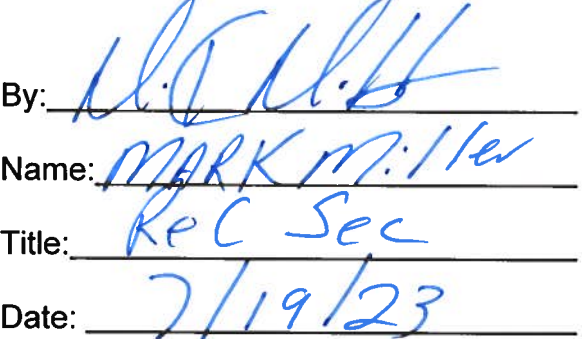 By:
Name: MARK Miller
Title: Rec Sec
Date: 7/19/23